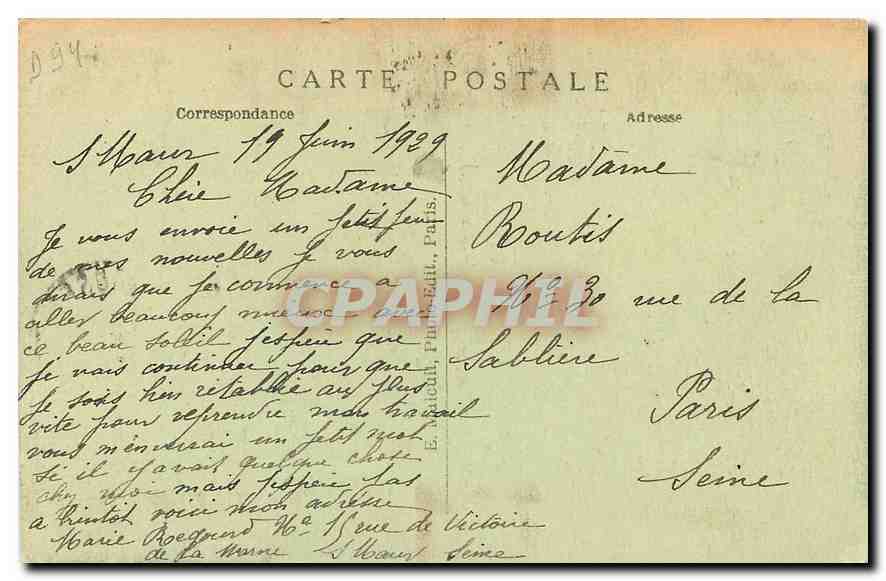 D94
CARTE POSTALE
Correspondance
Adresse
S Maur 19 Juin 1929
Chère Madame
Je vous envoie un petit peu
de mes nouvelles je vous
dirais que je commence a
aller beaucoup mieux avec
ce beau soleil j'espère que
je vais continuer pour que
je sois bien rétablie au plus
vite pour reprendre mon travail
vous m'enverrai un petit mot
si il y avait quelque chose
chez moi mais j'espère pas
a bientôt voici mon adresse
Marie N° 15 rue de Victoire
de la Marne S Maur Seine
Madame
Routis
N° 30 rue de la
Sablière
Paris
Seine
Photo-Edit., Paris.
CPAPHIL